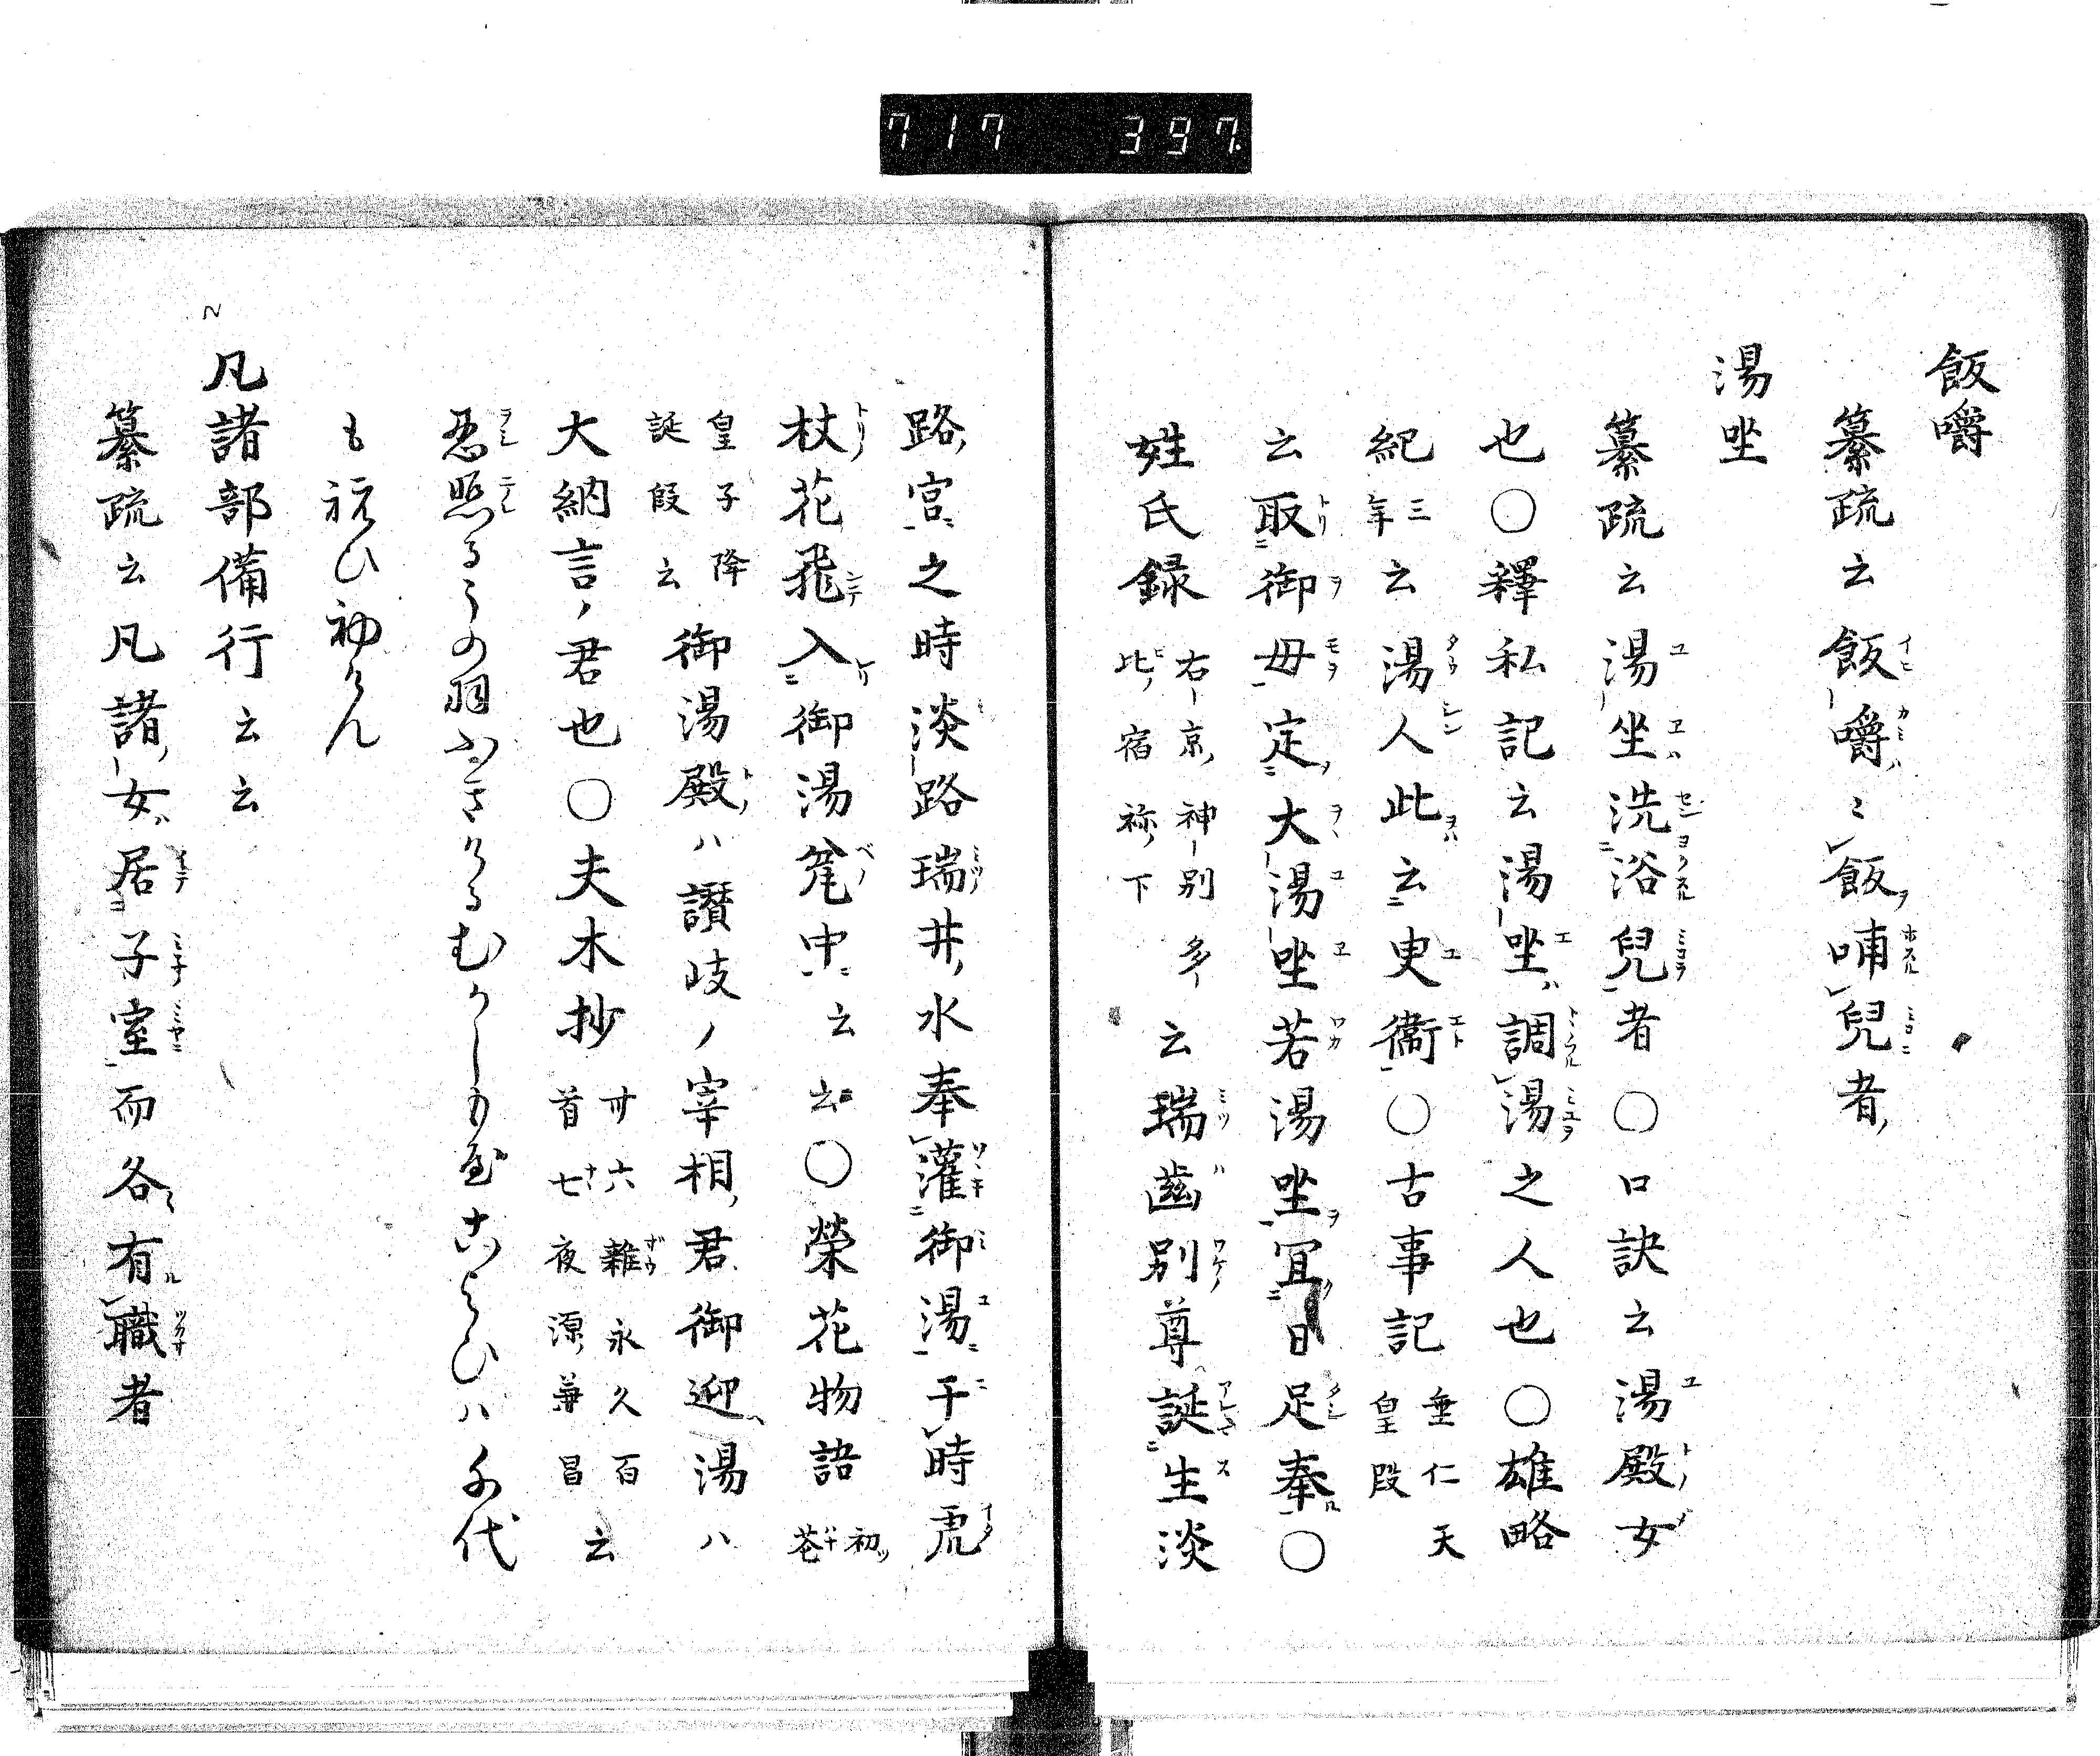 717 397.
飯嚼
纂疏云飯嚼ゝ飯哺兒者
湯坐
纂疏云湯坐洗浴兒者○口訣云湯殿女
也○釋私記云湯坐調湯之人也○雄略
紀三年云湯人此云臾衞○古事記垂仁天皇段
云取御母定大湯坐若湯坐宜日足奉○
姓氏録右京神別多比宿祢下云瑞齒別尊誕生淡
路宮之時淡路瑞井水奉灌御湯于時虎
杖花飛入御湯瓮中云云○榮花物語初花
皇子降誕段云御湯殿ハ讃岐ノ宰相君御迎湯ハ
大納言ノ君也○夫木抄卅六雜永久百首七夜源兼昌云
忍照るつの羽ふきけるむかしもを古よひハ千代
も祝ひ初けん
凡諸部備行云云
纂疏云凡諸女居子室而各有職者